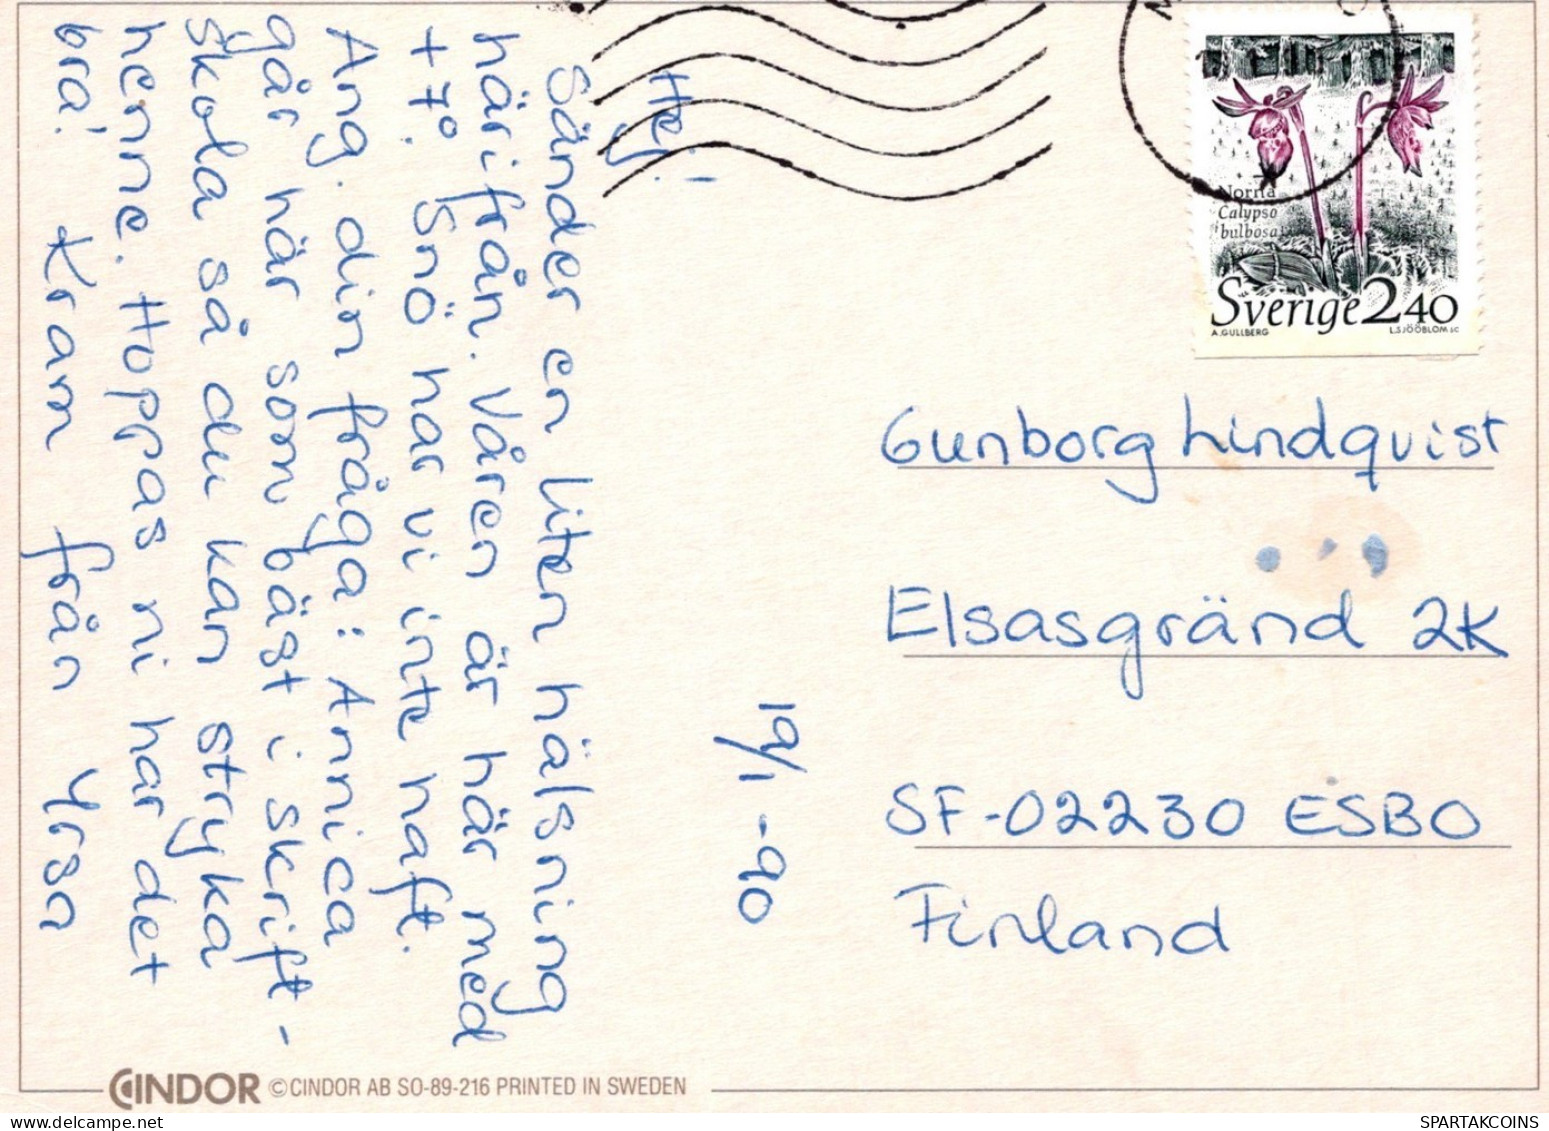 Hej!
Sänder en liten hälsning
härifrån. Våren är här med
+7°. Snö har vi inte haft.
Ang. din fråga: Annica
går här som bäst i skrift-
skola så du kan stryka
henne. Hoppas ni har det
bra! Kram från Yrsa
19/1 -90
Norna
Calypso
bulbosa
Sverige 240
A.GULLBERG L.SJÖÖBLOM SC
Gunborg Lindqvist
Elsasgränd 2K
SF-02230 ESBO
Finland
CINDOR © CINDOR AB SO-89-216 PRINTED IN SWEDEN
SPARTAKCOINS